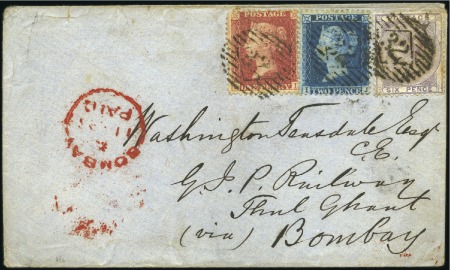 POSTAGE POSTAGE
TWO PENCE SIX PENCE
BOMBAY
PAID
Washington Teasdale Esqr
C.E.
G. I. P. Railway
Thul Ghaut
(via) Bombay